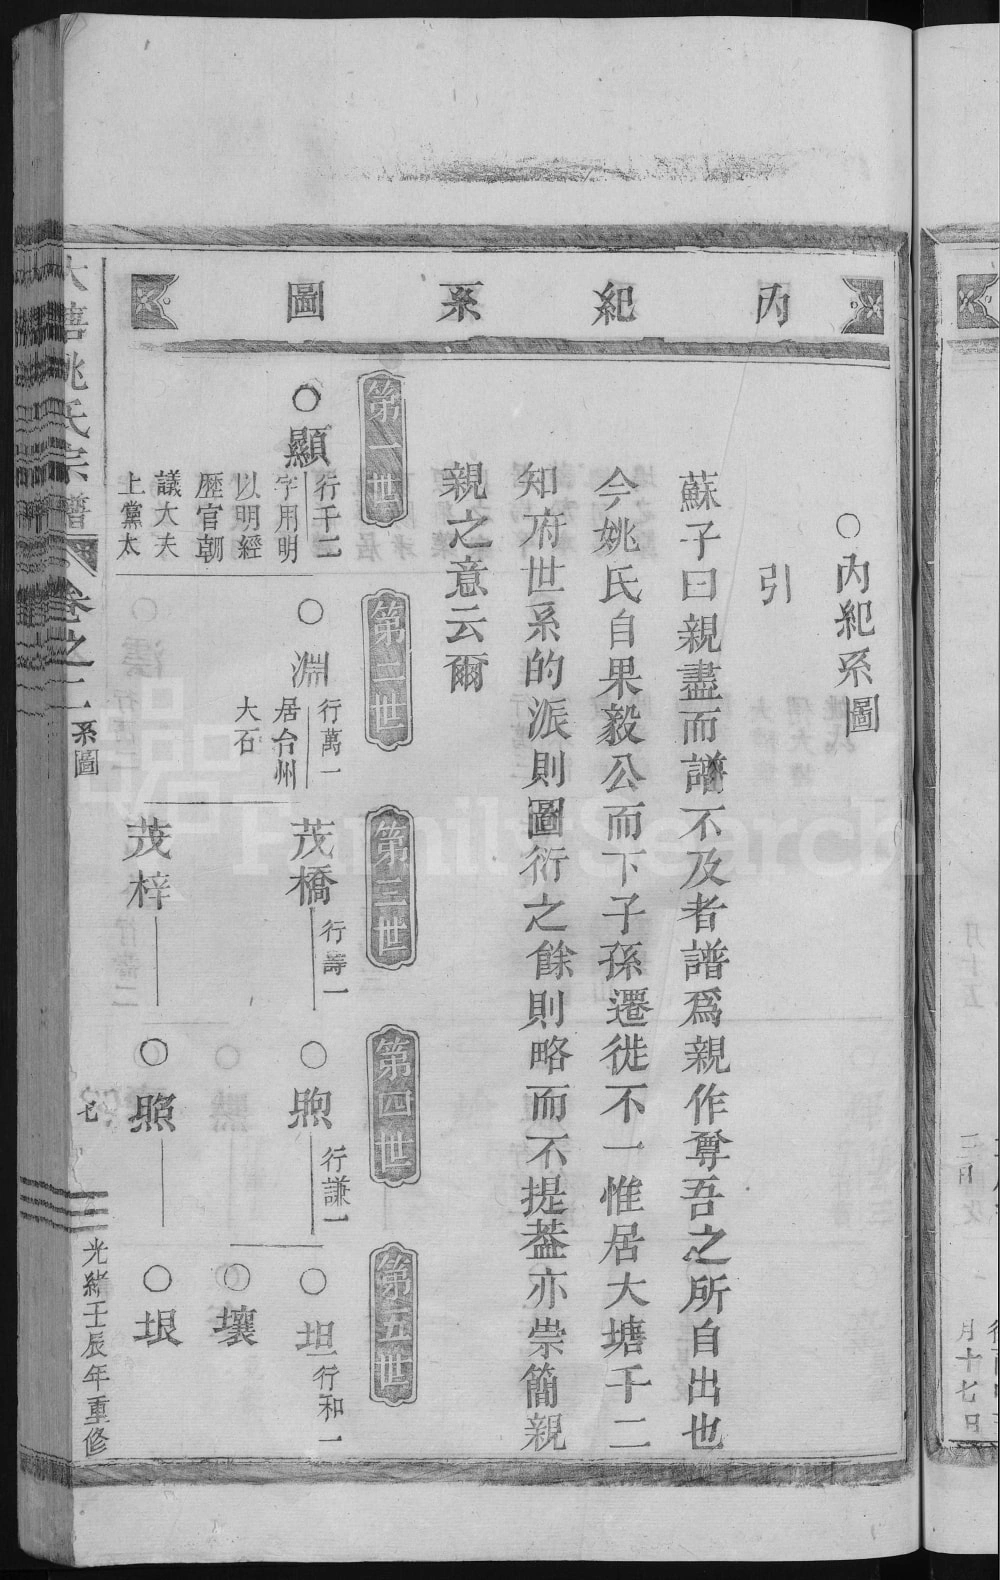 內紀系圖
○內紀系圖
引
蘇子曰親盡而譜不及者譜爲親作尊吾之所自出也
今姚氏自果毅公而下子孫遷徙不一惟居大塘千二
知府世系的派則圖衍之餘則略而不提葢亦崇簡親
親之意云爾
第一世
第二世
第三世
第四世
第五世
○顯
行千二
字用明
以明經
歷官朝
議大夫
上黨太
○淵
行萬一
居台州
大石
茂橋
行壽一
○煦
行謙一
○坦
行和一
○壤
茂梓
○照
○垠
姚氏宗譜
卷之二
系圖
七
光緒壬辰年重修
月十七日
FamilySearch